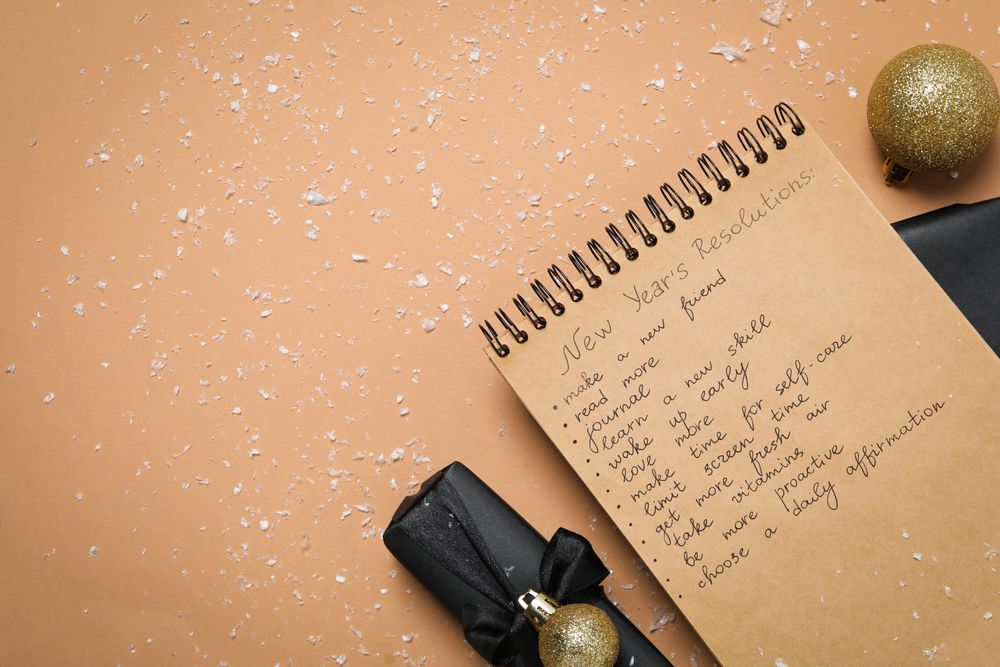 New Year's Resolutions:
• make a new friend
• read more
• journal
• learn a new skill
• wake up early
• love more
• make time for self-care
• limit screen time
• get more fresh air
• take vitamins
• be more proactive
• choose a daily affirmation